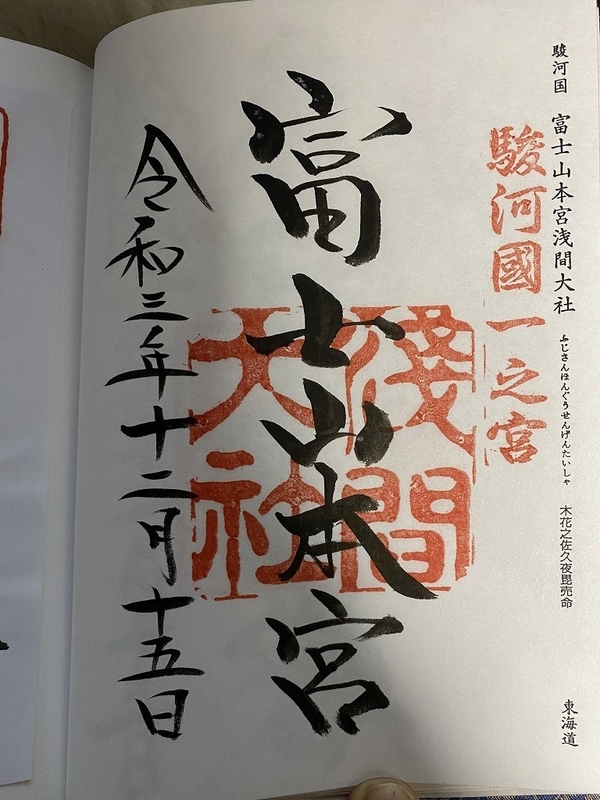 駿河国 富士山本宮浅間大社 ふじさんほんぐうせんげんたいしゃ 木花之佐久夜毘売命 東海道
駿河國一之宮
富士山本宮
淺間
大社
令和三年十二月十五日